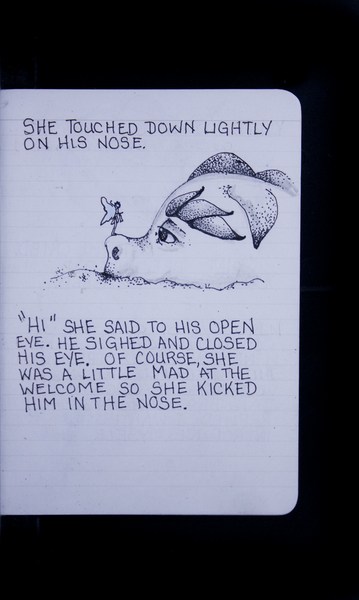 SHE TOUCHED DOWN LIGHTLY
ON HIS NOSE.
"HI" SHE SAID TO HIS OPEN
EYE. HE SIGHED AND CLOSED
HIS EYE. OF COURSE, SHE
WAS A LITTLE MAD AT THE
WELCOME SO SHE KICKED
HIM IN THE NOSE.